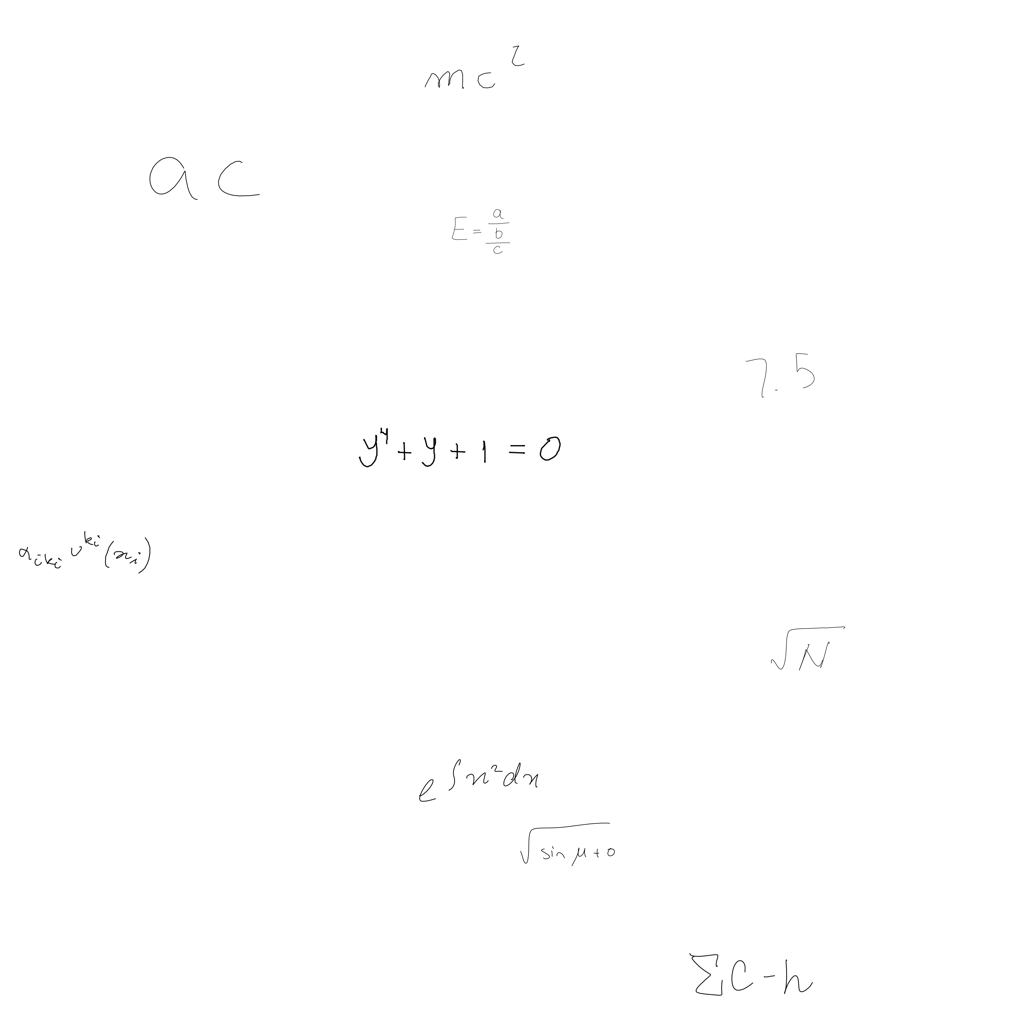 mc²
ac
E = a/b/c
7.5
y⁴ + y + 1 = 0
α_{iki} υ^{ki}(x_i)
√N
e^{∫x²dx}
√(sin μ + 0)
∑ C - h